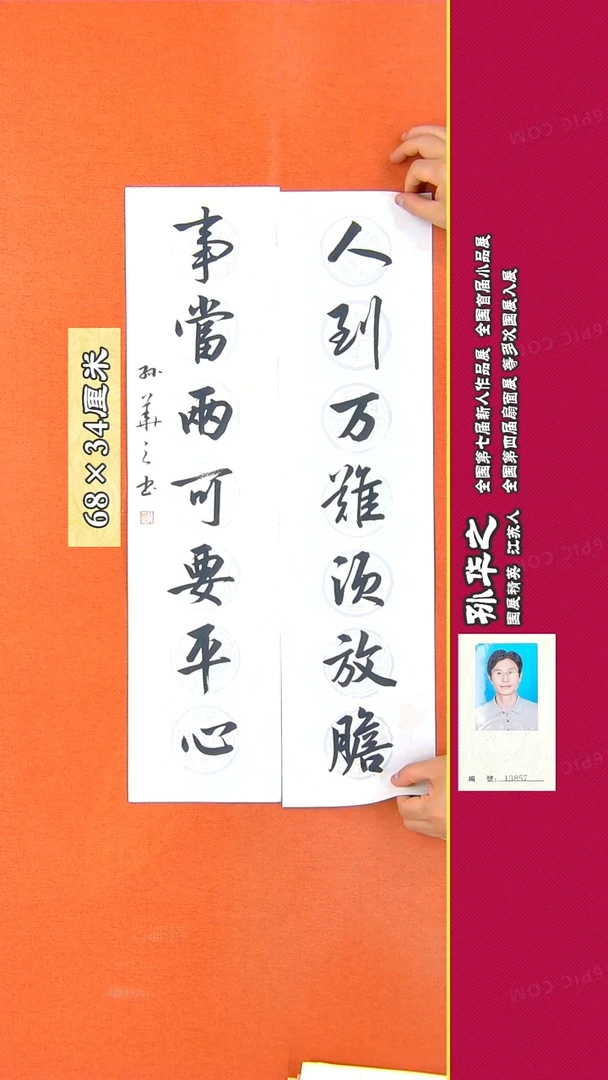 人到万難須放膽
事當兩可要平心
孙華之书
68×34厘米
孙华之
国展精英 江苏人
全国第七届新人作品展 全国首届小品展
全国第四届扇面展 等多次国展入展
編號: 13857
6PIC.COM
6PIC.COM